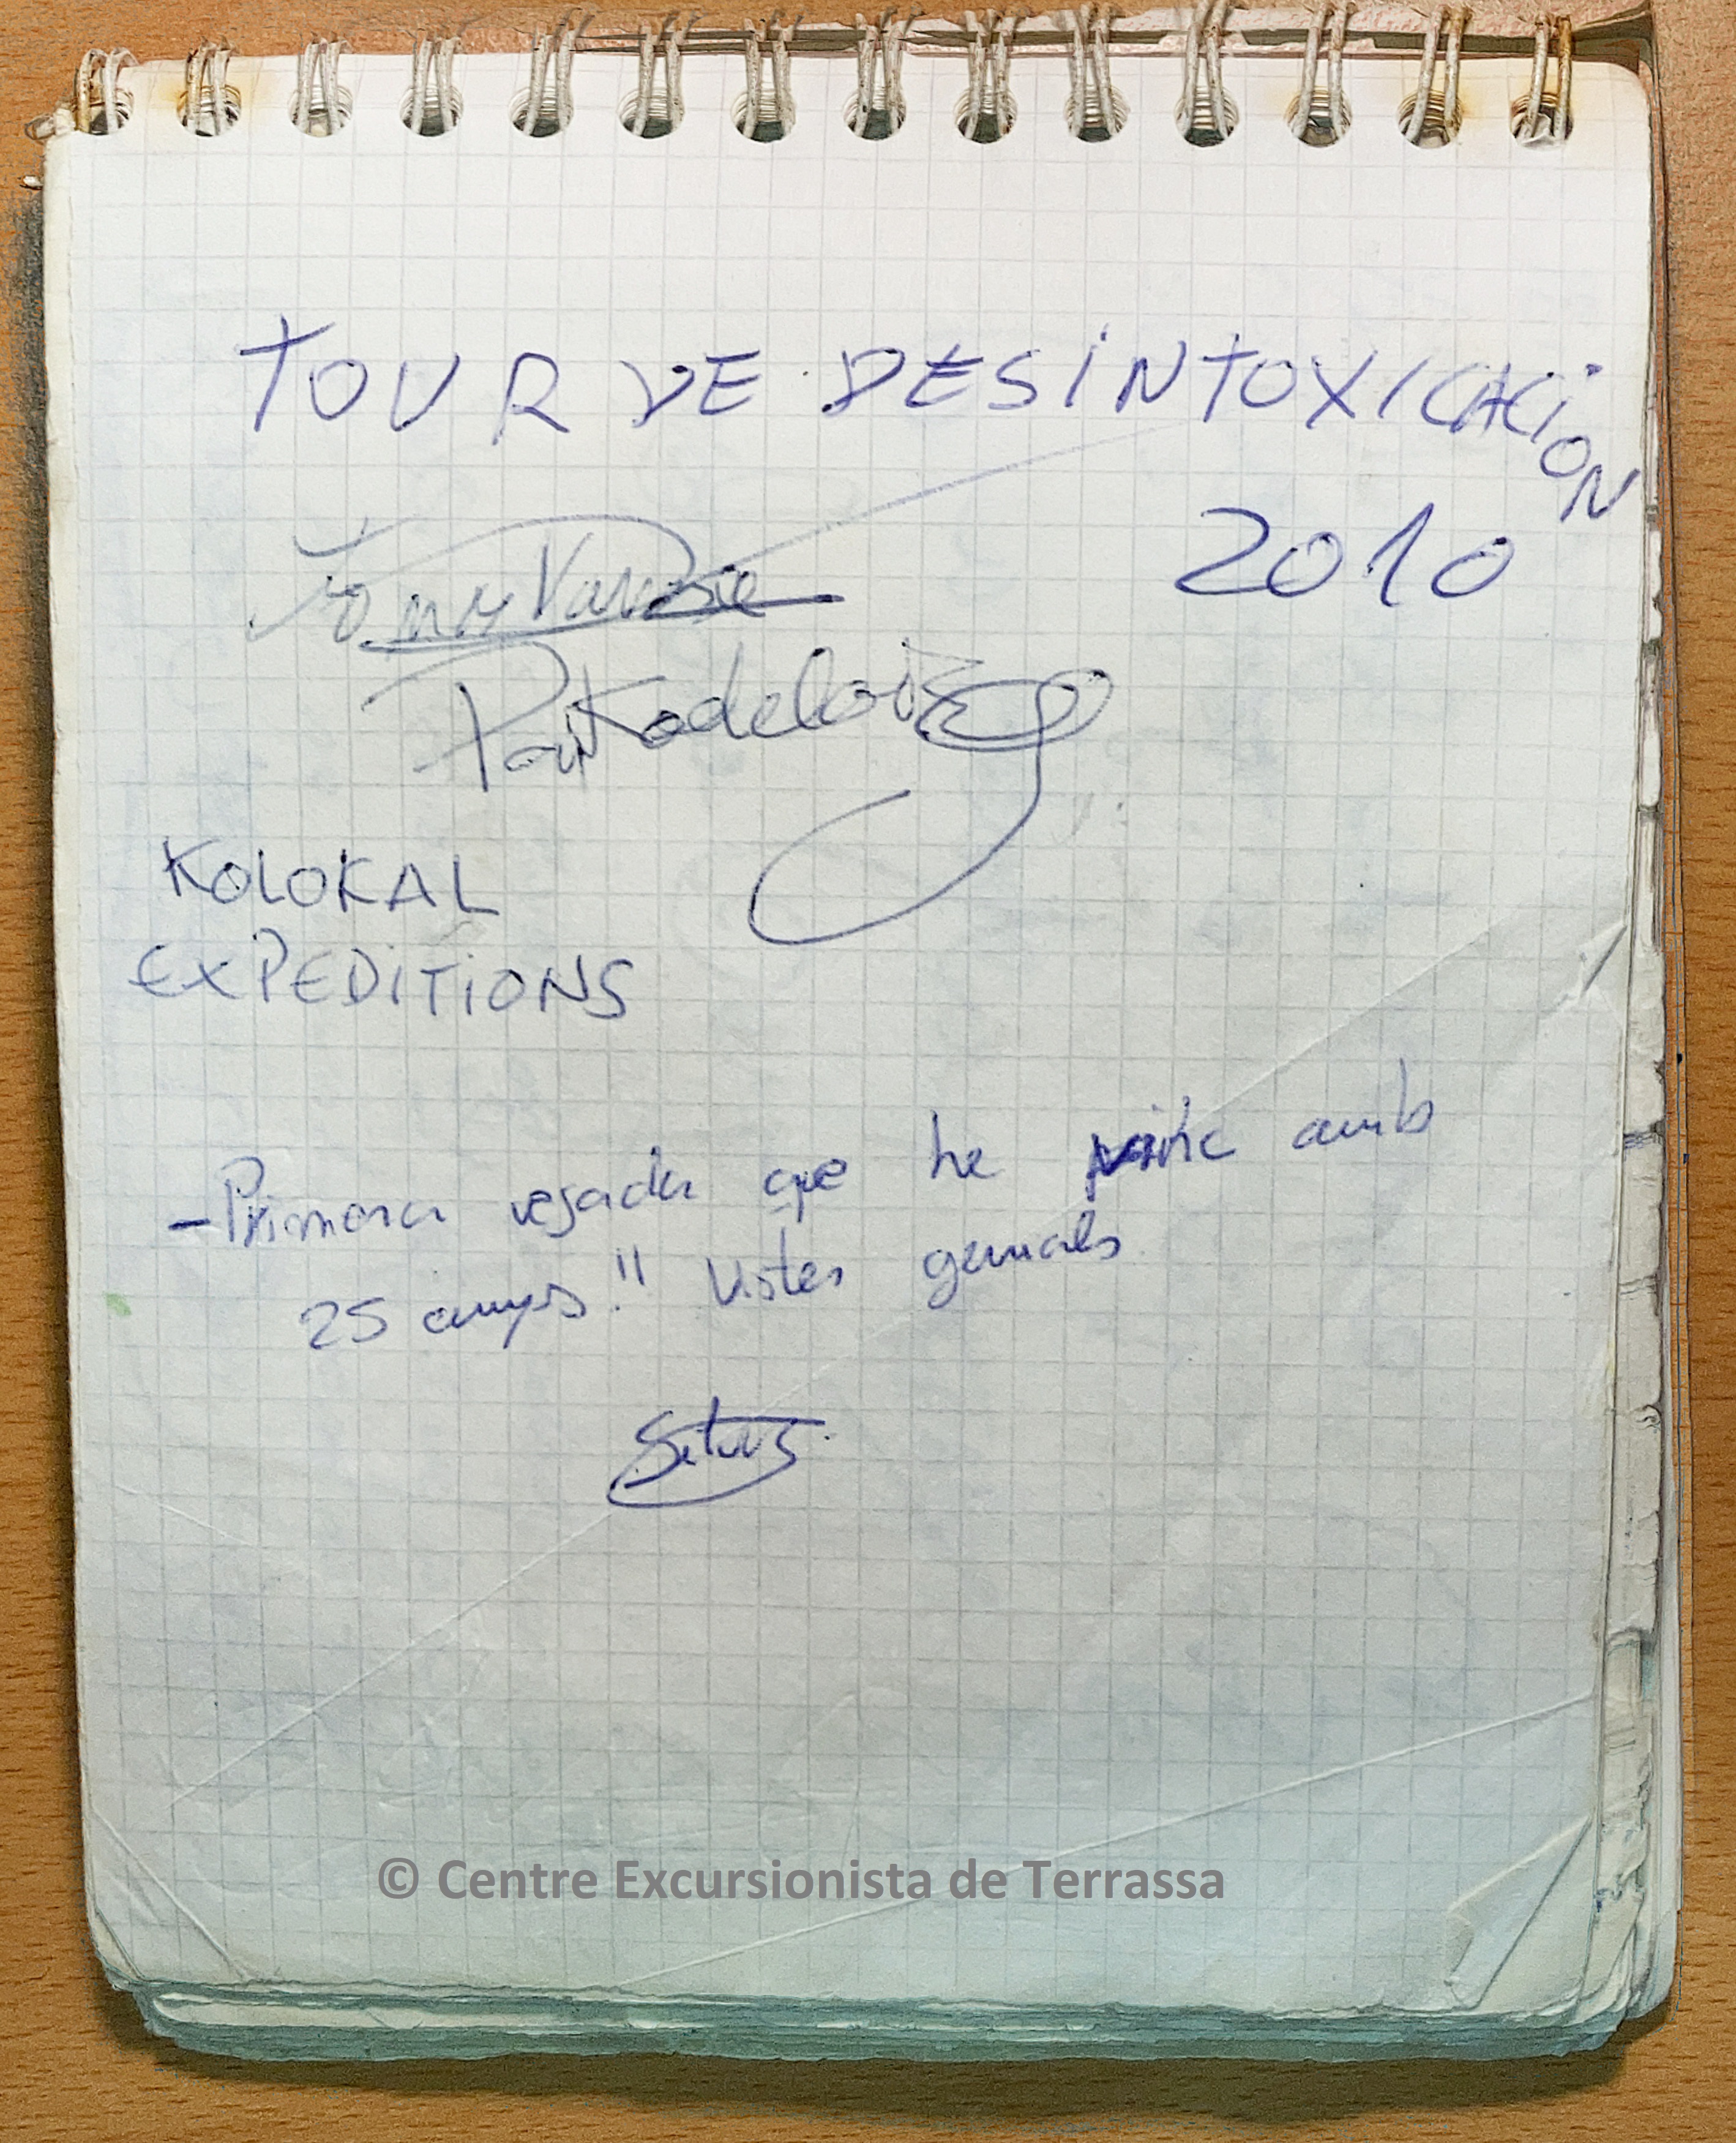 TOUR DE DESINTOXICACION
2010
KOLOKAL
EXPEDITIONS
-Primera vegada que he vinic amb
25 anys!! Vistes genials
© Centre Excursionista de Terrassa